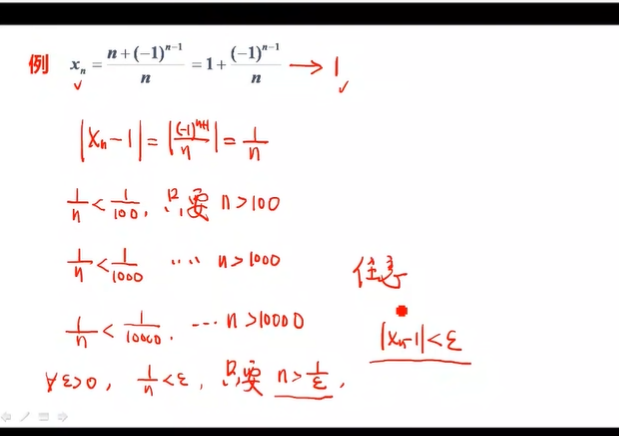 例 xₙ = (n+(-1)ⁿ⁻¹)/n = 1+(-1)ⁿ⁻¹/n → 1
|xₙ-1| = |(-1)ⁿ⁺¹/n| = 1/n
1/n < 1/100, 只要 n>100
1/n < 1/1000 ···· n>1000
1/n < 1/10000, ··· n>10000
∀ε>0, 1/n<ε, 只要 n>1/ε,
任意
|xₙ-1|<ε